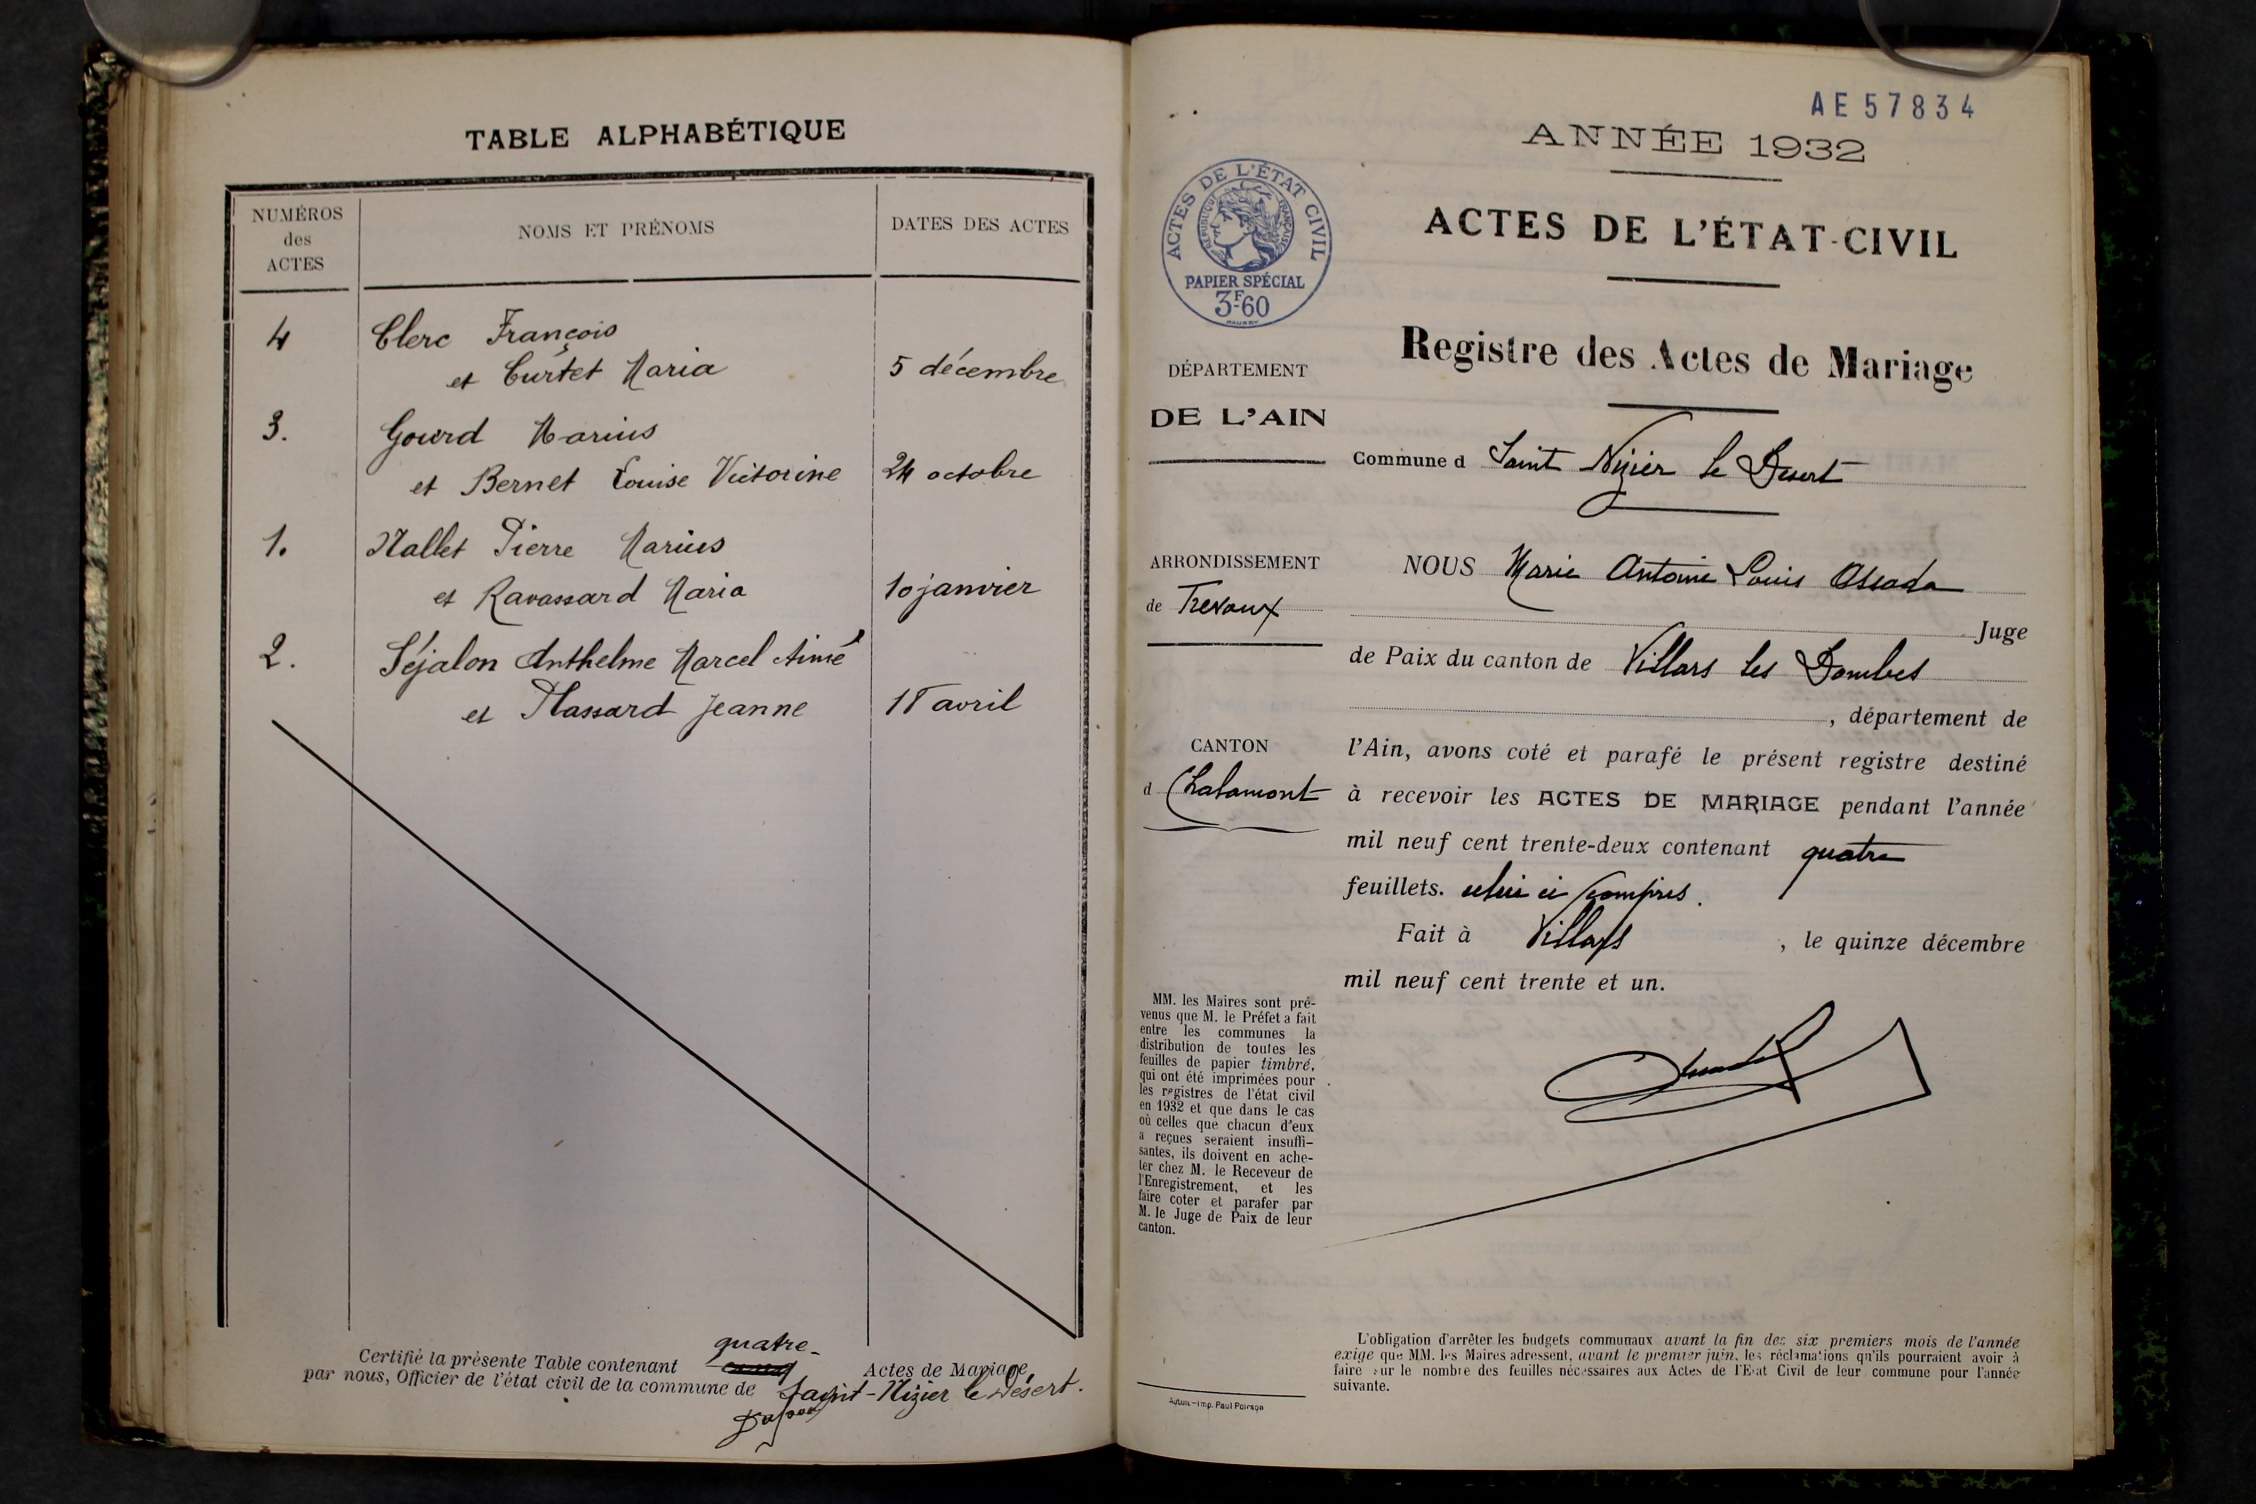 TABLE ALPHABÉTIQUE
NUMÉROS
des
ACTES
NOMS ET PRÉNOMS
DATES DES ACTES
4 Clerc François
et Curtet Maria 5 décembre
3. Gourd Marius
et Bernet Louise Victorine 24 octobre
1. Mallet Pierre Marius
et Ravassard Maria 10 janvier
2. Séjalon Anthelme Marcel Aimé
et Massard Jeanne avril
quatre
Certifié la présente Table contenant Actes de Mariage
par nous, Officier de l'état civil de la commune de Saint-Nizier le Désert.
AE 57834
ANNÉE 1932
ACTES DE L'ÉTAT CIVIL
RÉPUBLIQUE FRANÇAISE
PAPIER SPÉCIAL
3F60
ACTES DE L'ÉTAT-CIVIL
Registre des Actes de Mariage
DÉPARTEMENT
DE L'AIN
Commune d Saint Nizier le Desert
ARRONDISSEMENT
de Trevoux
NOUS Marie Antoine Louis
Juge
de Paix du canton de Villars les Dombes
, département de
CANTON
d Chalamont
l'Ain, avons coté et parafé le présent registre destiné
à recevoir les ACTES DE MARIAGE pendant l'année
mil neuf cent trente-deux contenant quatre
feuillets. celui ci compris.
Fait à Villars, le quinze décembre
mil neuf cent trente et un.
MM. les Maires sont pré-
venus que M. le Préfet a fait
entre les communes la
distribution de toutes les
feuilles de papier timbré,
qui ont été imprimées pour
les registres de l'état civil
en 1932 et que dans le cas
où celles que chacun d'eux
a reçues seraient insuffi-
santes, ils doivent en ache-
ter chez M. le Receveur de
l'Enregistrement, et les
faire coter et parafer par
M. le Juge de Paix de leur
canton.
L'obligation d'arrêter les budgets communaux avant la fin des six premiers mois de l'année
exige que MM. les Maires adressent, avant le premier juin, les réclamations qu'ils pourraient avoir à
faire sur le nombre des feuilles nécessaires aux Actes de l'Etat Civil de leur commune pour l'année
suivante.
Autun - Imp. Paul